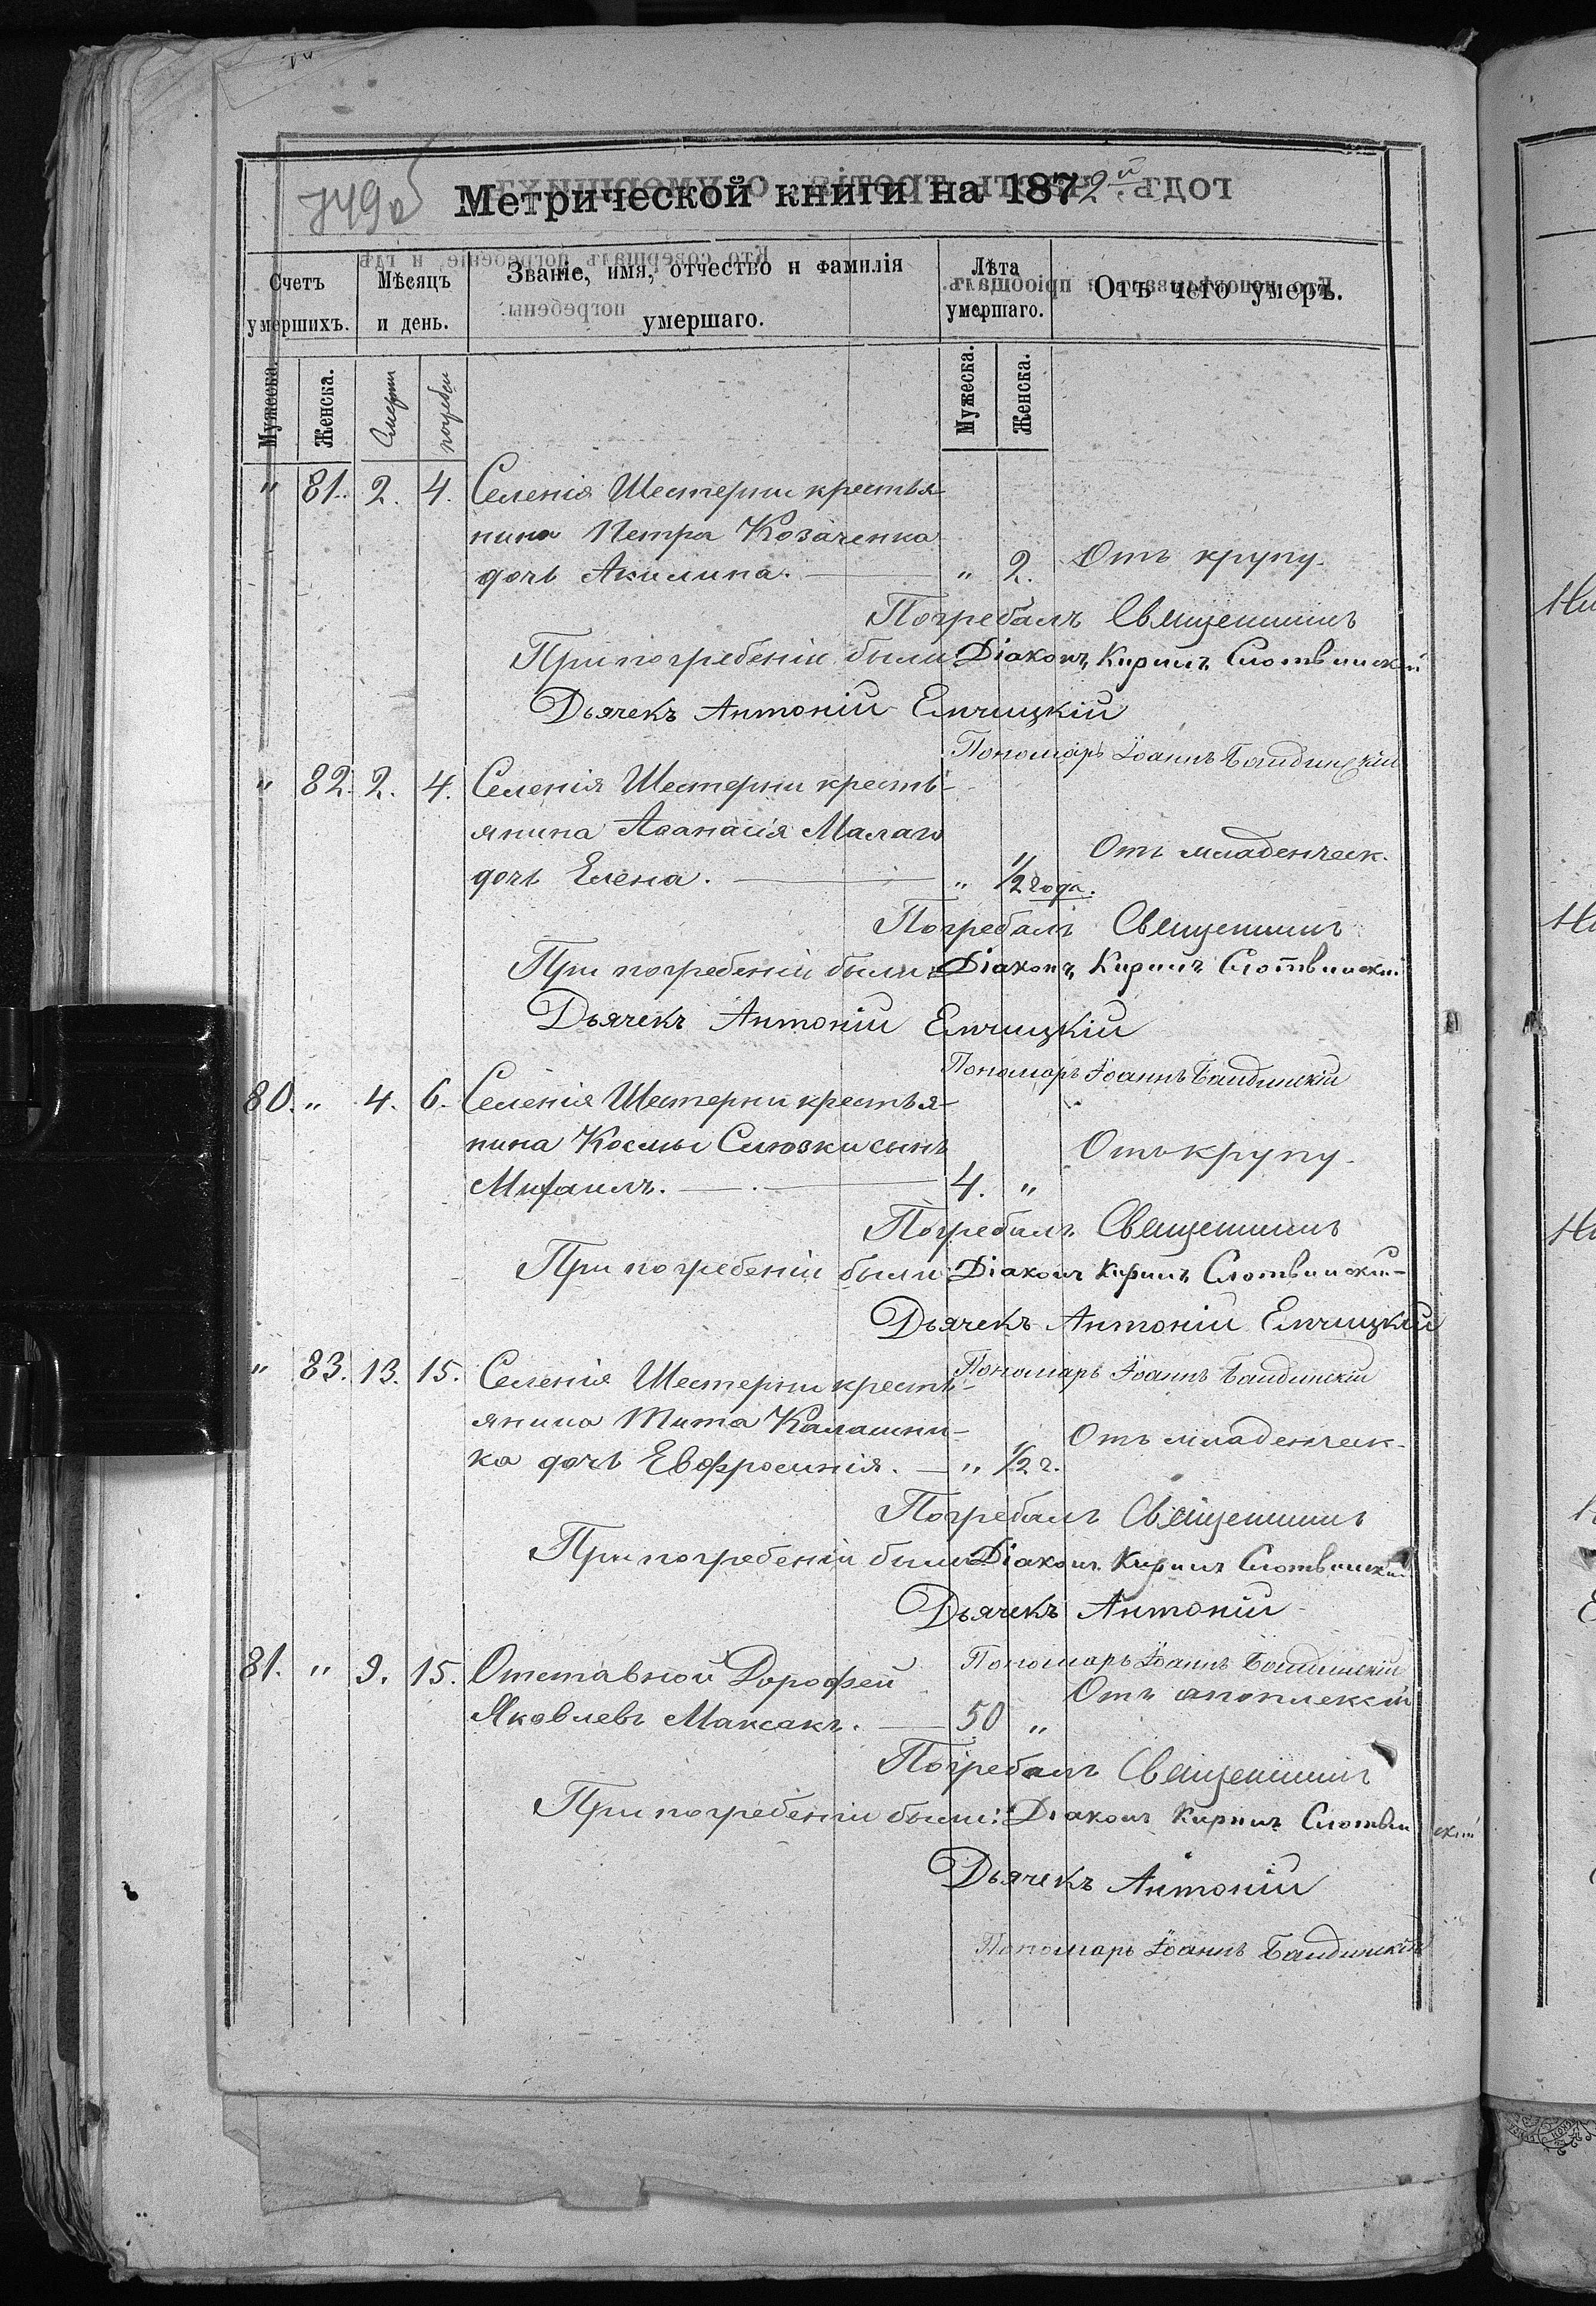 Метрической книги на 1872й
Счетъ умершихъ.
Мѣсяцъ и день.
Званіе, имя, отчество и фамилія умершаго.
Лѣта умершаго.
Отъ чего умеръ.
Мужеска. Женска. Смерти погребен Мужеска. Женска.
" 81. 2. 4. Селенія Шестерни крестья-
нина Петра Козаченка
дочь Акилина. " 2. Отъ крупу.
Погребалъ Священникъ
При погребеніи были: Діаконъ Кирилъ Слотвинскій
Дьячекъ Антоній Емчицкій
Пономарь Іоаннъ Бандинскій
" 82. 2. 4. Селенія Шестерни кресть-
янина Аѳанасія Малаго
дочь Елена. " 1/2 года. Отъ младенческ.
Погребалъ Священникъ
При погребеніи были: Діаконъ Кирилъ Слотвинскій
Дьячекъ Антоній Емчицкій
Пономарь Іоаннъ Бандинскій
80. " 4. 6. Селенія Шестерни крестья-
нина Космы Слюзки сынъ
Михаилъ. 4. " Отъ крупу.
Погребалъ Священникъ
При погребеніи были: Діаконъ Кирилъ Слотвинскій
Дьячекъ Антоній Емчицкій
Пономарь Іоаннъ Бандинскій
" 83. 13. 15. Селенія Шестерни кресть-
янина Тита Калашни-
ка дочь Евфросинія. " 1/2 г. Отъ младенческ.
Погребалъ Священникъ
При погребеніи были: Діаконъ Кирилъ Слотвинскій
Дьячекъ Антоній
Пономарь Іоаннъ Бандинскій
81. " 9. 15. Отставной Дорофей
Яковлевъ Максакъ. 50 " Отъ апоплексіи
Погребалъ Священникъ
При погребеніи были: Діаконъ Кирилъ Слотвинскій
Дьячекъ Антоній
Пономарь Іоаннъ Бандинскій